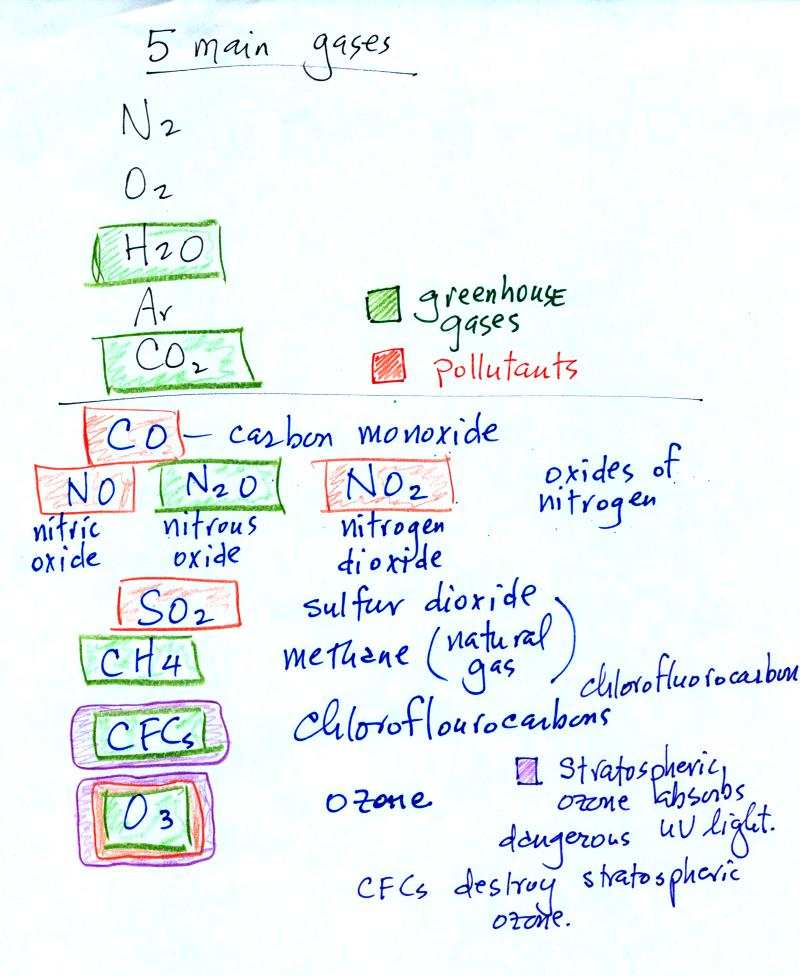 5 main gases
N2
O2
H2O
Ar
CO2
greenhouse
gases
pollutants
CO – carbon monoxide
NO N2O NO2
nitric oxide
nitrous oxide
nitrogen dioxide
oxides of
nitrogen
SO2 sulfur dioxide
CH4 methane (natural
gas)
chlorofluorocarbon
CFCs chloroflourocarbons
O3 ozone
Stratospheric
ozone absorbs
dangerous UV light.
CFCs destroy stratospheric
ozone.